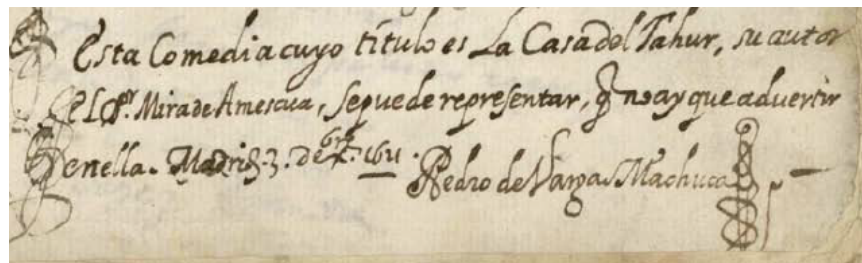 Esta Comedia cuyo título es La Casa del Tahur, su autor
el Dr. Mira de Amescua, se puede representar, q no ay que advertir
en ella. Madrid. 3. de 1621. Pedro de Vargas Machuca